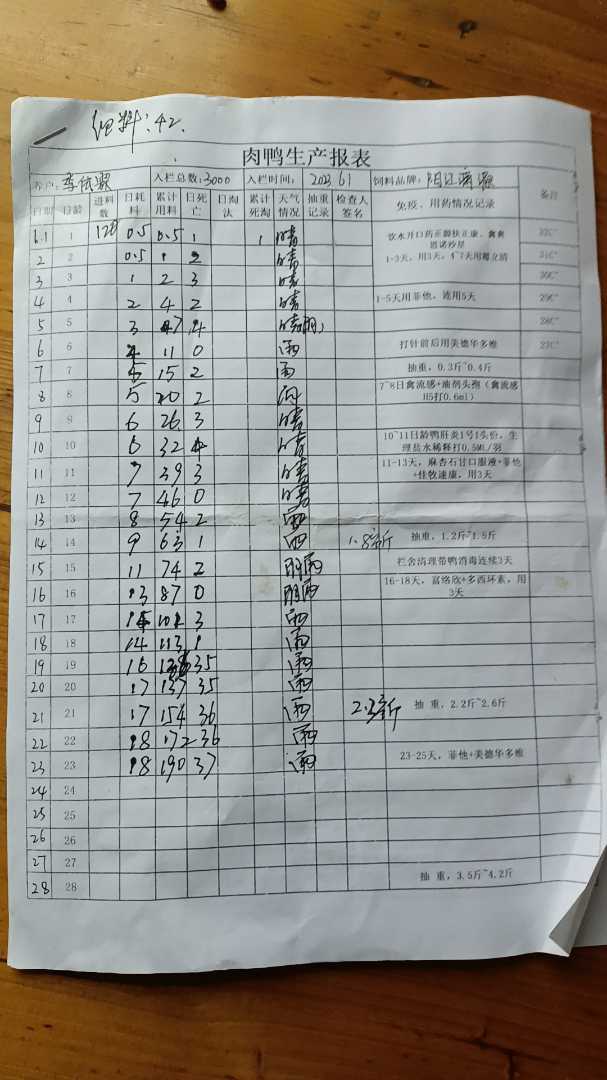 细料:42.
肉鸭生产报表
养户: 入栏总数:3000 入栏时间: 2023.6.1 饲料品牌:
日期 日龄 进料数 日耗料 累计用料 日死亡 日淘汰 累计死淘 天气情况 抽重记录 检查人签名 免疫、用药情况记录 备注
6.1 1 128 0.5 0.5 1 1 晴 饮水开口药 32C°
2 2 0.5 1 2 晴 1-3天,用3天,4~7天用霉立清 31C°
3 3 1 2 3 晴 30C°
4 4 2 4 2 晴 1-5天用菲他,连用5天 29C°
5 5 3 7 4 晴 28C°
6 6 4 11 0 雨 打针前后用美德华多维 27C°
7 7 4 15 2 雨 抽重,0.3斤~0.4斤
8 8 5 20 2 雨 7~8日禽流感+油剂头孢(禽流感H5打0.6ml)
9 9 6 26 3 晴
10 10 6 32 4 晴 10~11日龄鸭肝炎1号1头份,生理盐水稀释打0.5ML/羽
11 11 7 39 3 晴 11-13天,麻杏石甘口服液+菲他+佳牧速康,用3天
12 12 7 46 0 晴
13 13 8 54 2 雨
14 14 9 63 1 雨 1.8斤 抽重,1.2斤~1.5斤
15 15 11 74 2 阴雨 栏舍清理带鸭消毒连续3天
16 16 13 87 0 阴雨 16-18天,富络欣+多西环素,用3天
17 17 3 雨
18 18 14 1 雨
19 19 16 35 雨
20 20 17 137 35 雨
21 21 17 154 36 雨 抽重,2.2斤~2.6斤
22 22 18 172 36 雨
23 23 18 190 37 雨 23-25天,菲他+美德华多维
24 24
25 25
26 26
27 27
28 28 抽重,3.5斤~4.2斤